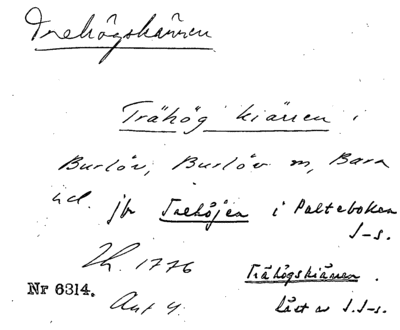 Trehögskärren
Trähög kiärren i
Burlöv, Burlöv m, Bara
hd. jfr Trehöjen i Palteboken
J-s.
Lh. 1776
Trähögskiärren.
Nr 6314.
Ant 4.
läst av J.J-s.